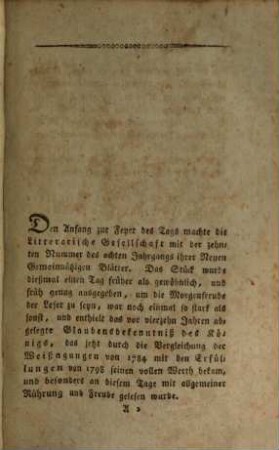 Den Anfang zur Feyer des Tags machte die
Litterarische Gesellschaft mit der zehn
ten Nummer des achten Jahrgangs ihrer Neuen
Gemeinnützigen Blätter. Das Stück wurde
diesmal einen Tag früher als gewöhnlich, und
früh genug ausgegeben, um die Morgenfreude
der Leser zu seyn, war noch einmal so stark als
sonst, und enthielt das vor vierzehn Jahren ab
gelegte Glaubensbekenntniß des Kö
nigs, das jetzt durch die Vergleichung der
Weißagungen von 1784 mit den Erfül
lungen von 1798 seinen vollen Werth bekam,
und besonders an diesem Tage mit allgemeiner
Rührung und Freude gelesen wurde.
A 2